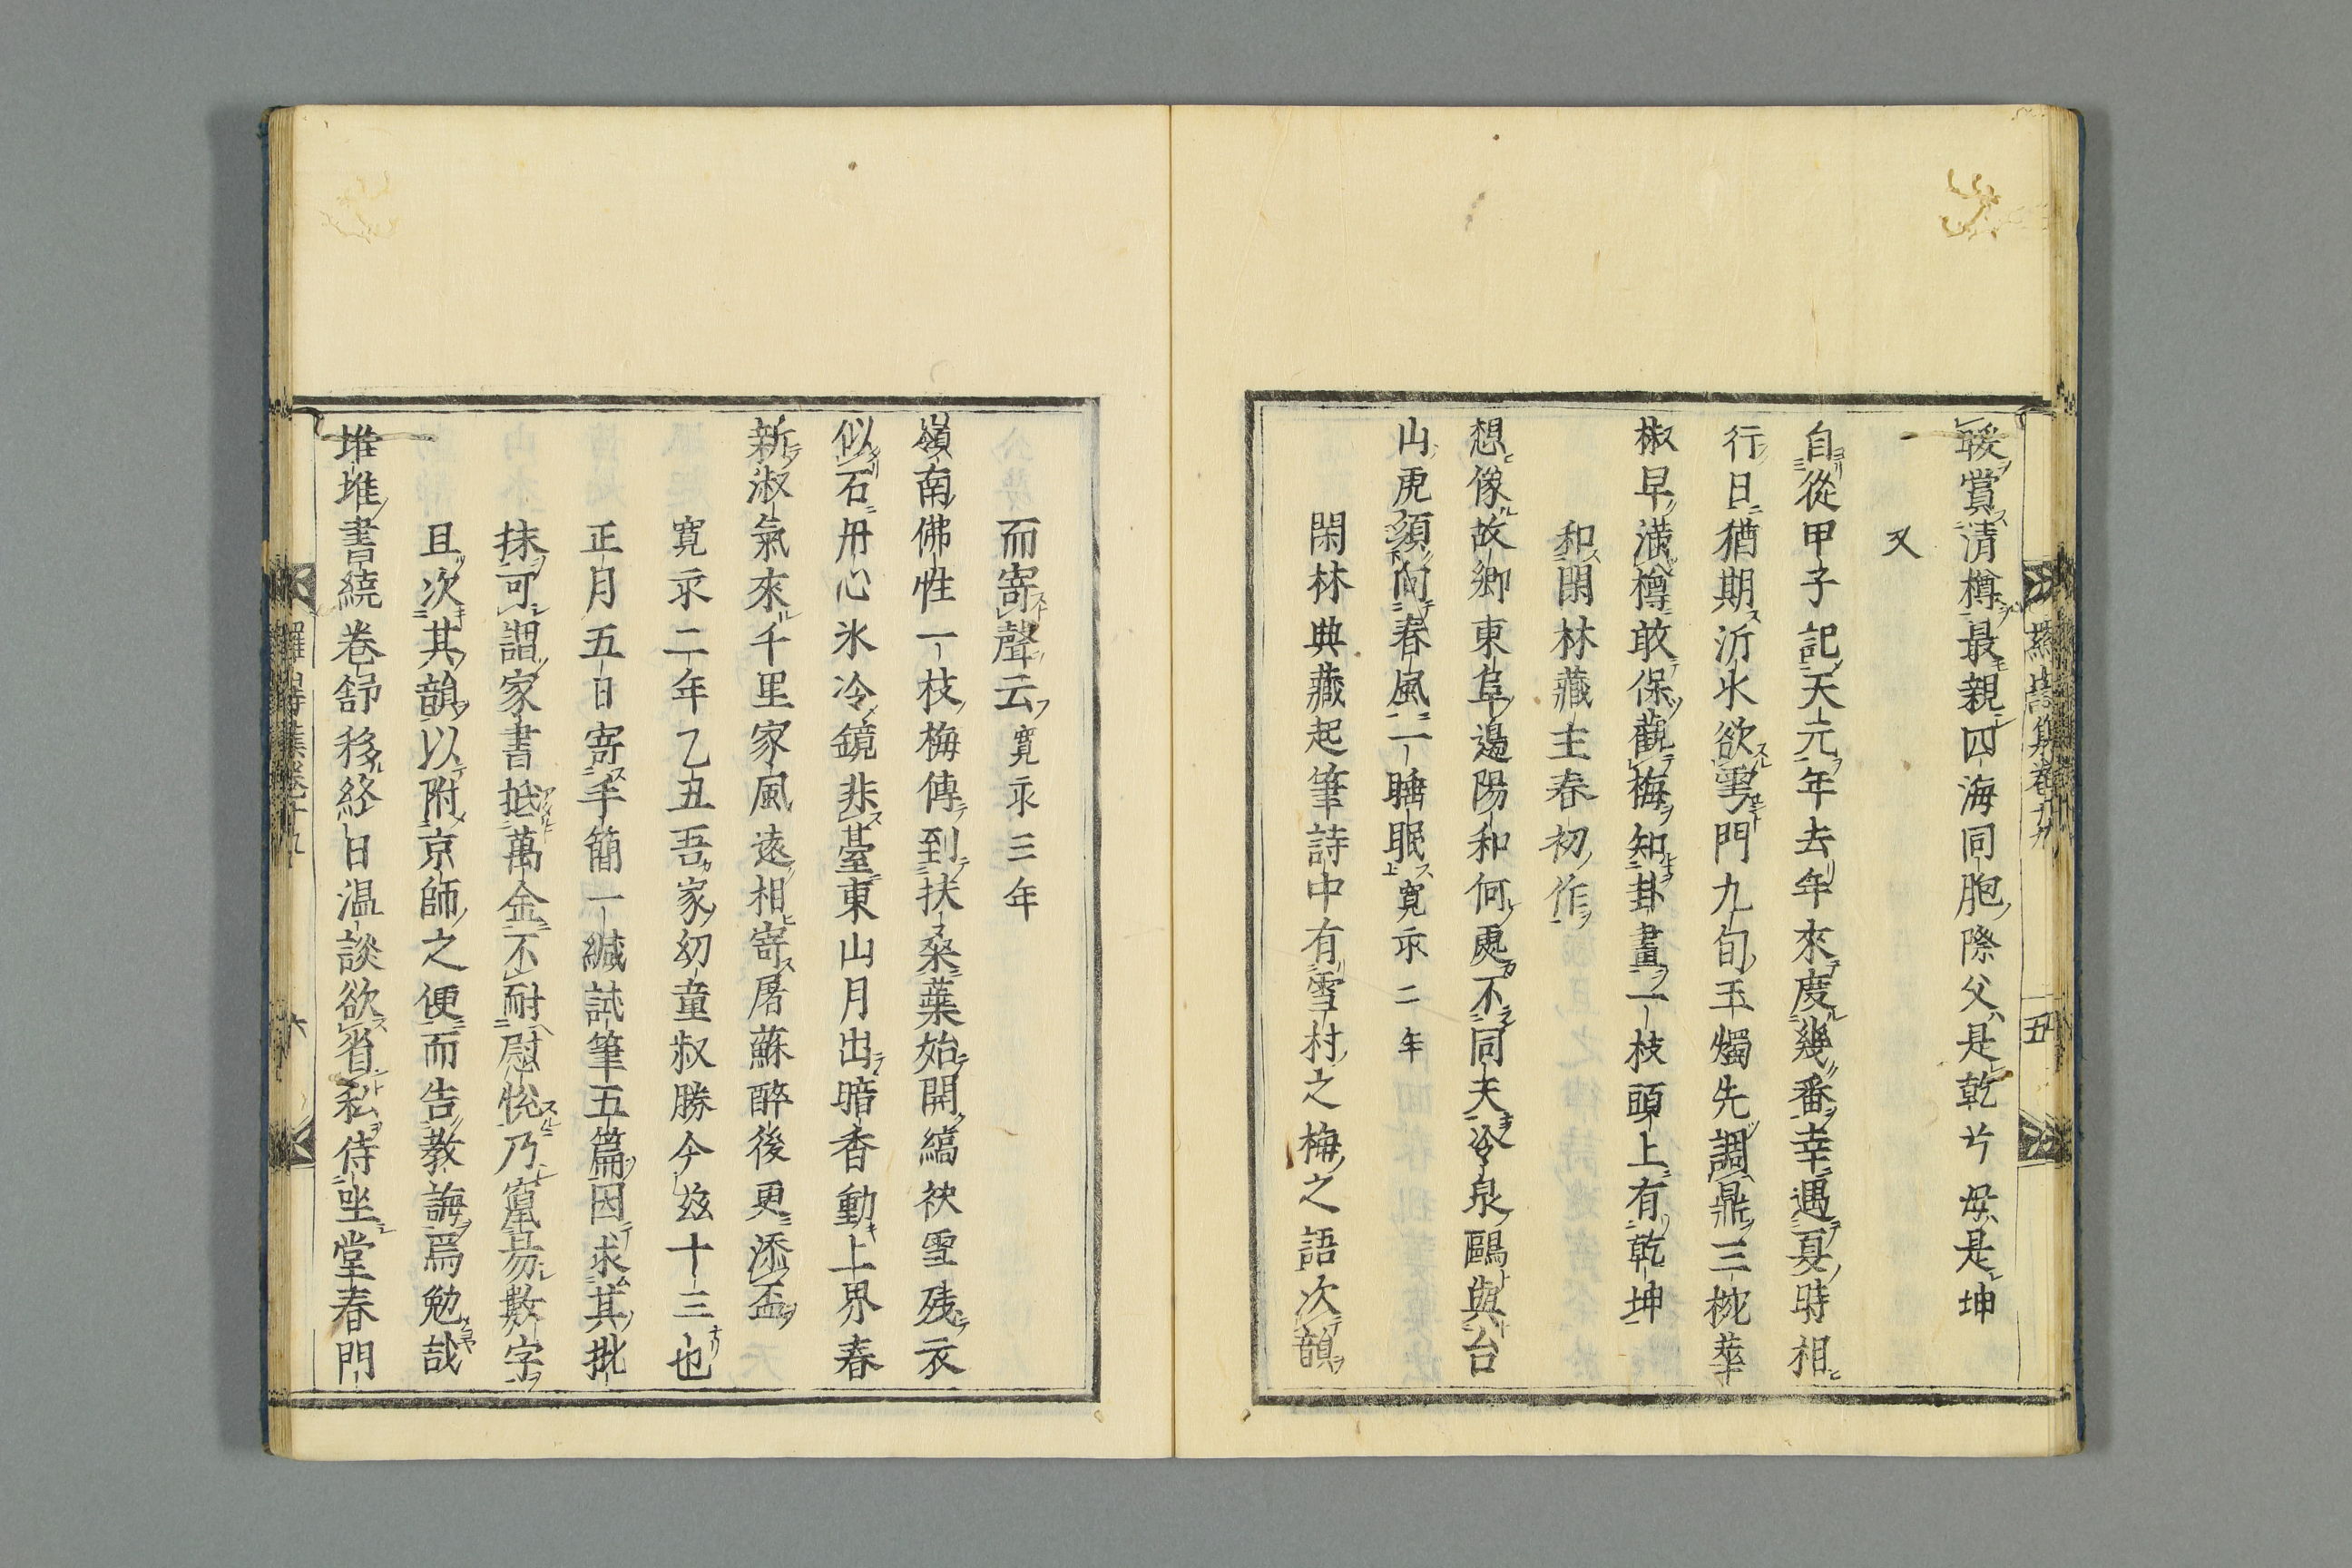 暖賞清樽最親四海同胞際父是乾兮母是坤
又
自從甲子記天元年去年來度幾番幸遇夏時相
行日猶期沂水欲雩門九旬玉燭先調鼎三椀華
椒早滿樽敢保觀梅知卦畫一枝頭上有乾坤
和閑林藏主春初作
想像故鄉東阜邊陽和何處不同天冷泉鷗與台
山虎須向春風一二睡眠寛永二年
閑林典藏起筆詩中有雪村之梅之語次韻
而寄聲云寛永三年
嶺南佛性一枝梅傳到扶桑葉始開縞袂雪殘衣
似石丹心氷冷鏡非臺東山月出暗香動上界春
新淑氣來千里家風遠相寄屠蘇醉後更添盃
寛永二年乙丑吾家幼童叔勝今玆十三也
正月五日寄手簡一緘試筆五篇因求其批
抹可謂家書抵萬金不耐慰悅乃竄易數字
且次其韻以附京師之便而告教誨焉勉哉
堆堆書繞卷舒移終日温談欲省私侍坐堂春門